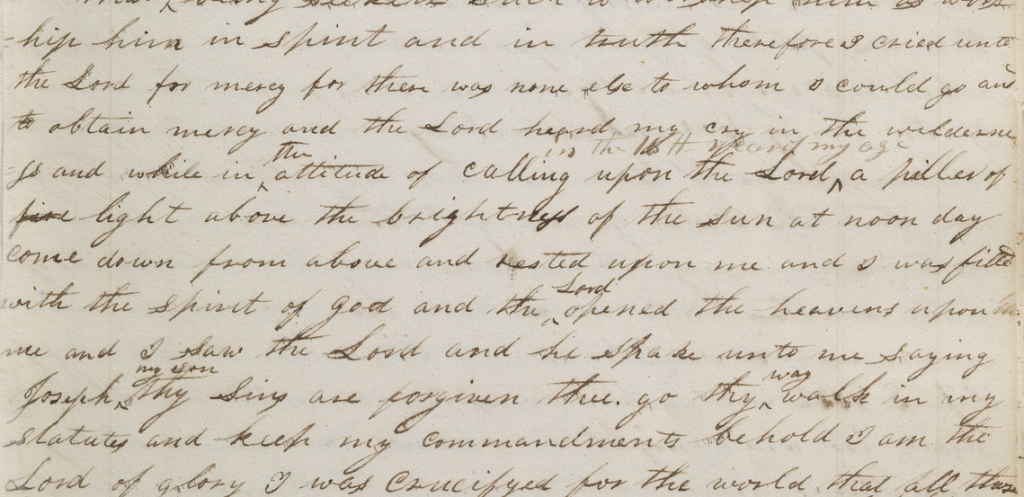 seeketh such to worship him
=hip him in spirit and in truth therefore I cried unto
the Lord for mercy for there was none else to whom I could go and
to obtain mercy and the Lord heard my cry in the wilderne
in the 16th year of my age
=ss and while in the attitude of calling upon the Lord a piller of
fire light above the brightness of the sun at noon day
come down from above and rested upon me and I was filled
with the spirit of god and the Lord opened the heavens upon
me and I saw the Lord and he spake unto me saying
Joseph my son thy sins are forgiven thee. go thy way walk in my
statutes and keep my commandments behold I am the
Lord of glory I was crucifyed for the world that all those